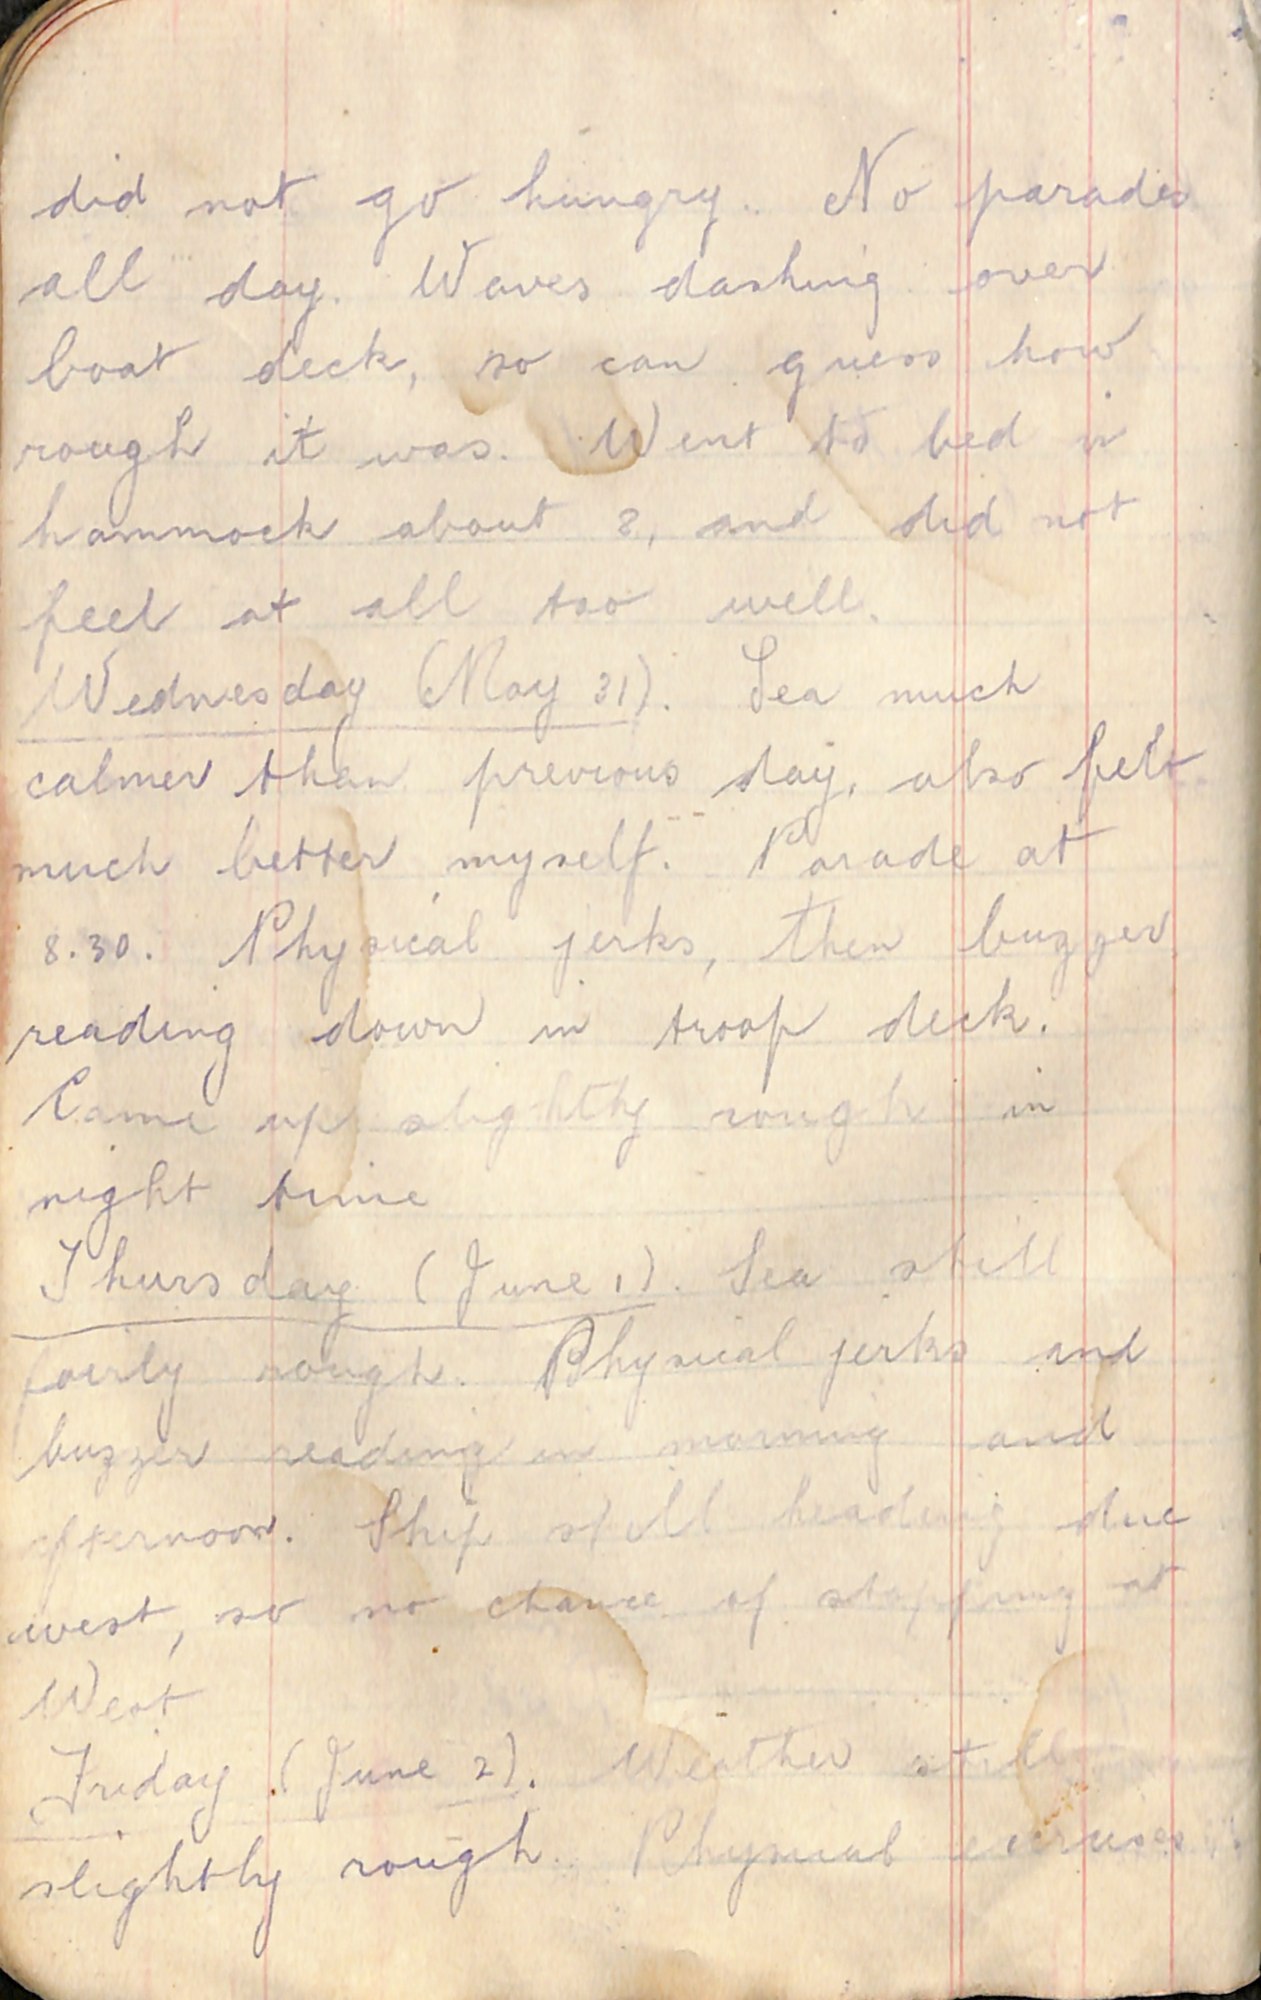 did not go hungry. No parades
all day. Waves dashing over
boat deck, so can guess how
rough it was. Went to bed in
hammock about 8, and did not
feel at all too well.
Wednesday (May 31). Sea much
calmer than previous day, also felt
much better myself. Parade at
8.30. Physical jerks, then buzzer
reading down in troop deck.
Came up slightly rough in
night time
Thursday (June 1). Sea still
fairly rough. Physical jerks and
buzzer reading in morning and
afternoon. Ship still heading due
west, so no chance of stopping at
West
Friday (June 2). Weather still
slightly rough. Physical exercises